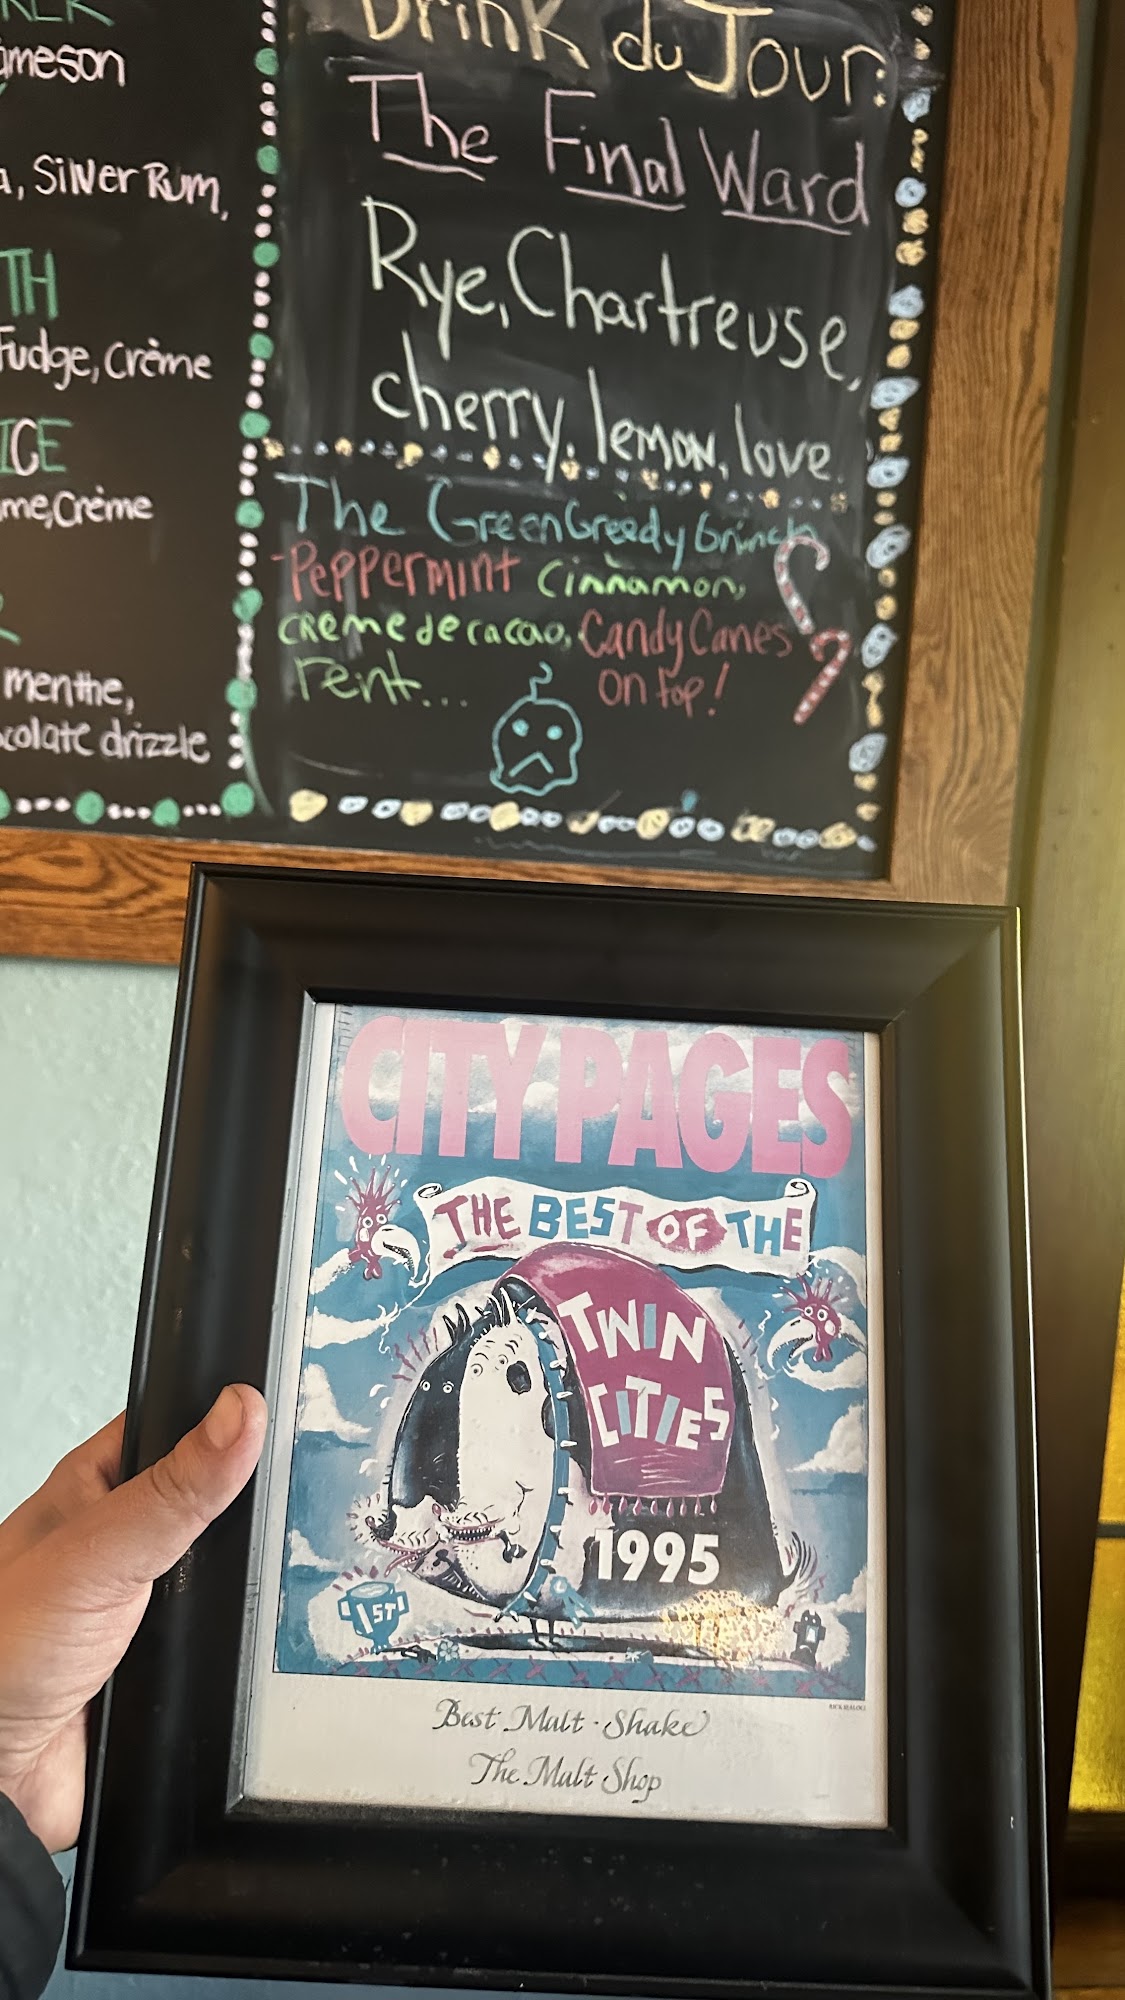 ameson
, Silver Rum,
TH
Fudge, Crème
ICE
me, Crème
menthe,
colate drizzle
Drink du Jour:
The Final Ward
Rye, Chartreuse,
cherry, lemon, love.
The Green Greedy Grinch
-Peppermint Cinnamon,
creme de cacao, Candy Canes
rent... on top!
CITY PAGES
THE BEST OF THE
TWIN
CITIES
1995
1ST!
Best Malt · Shake
The Malt Shop